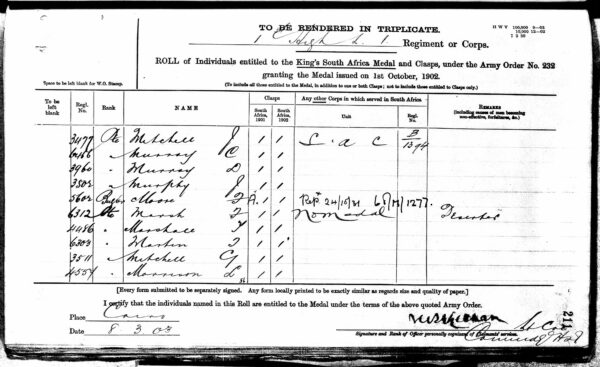 TO BE RENDERED IN TRIPLICATE.
H W V 100,000 9—02
10,000 12—02
1 High L. I Regiment or Corps.
ROLL of Individuals entitled to the King's South Africa Medal and Clasps, under the Army Order No. 232
granting the Medal issued on 1st October, 1902.
Space to be left blank for W.O. Stamp.
(To include all those entitled to the Medal, in addition to one or both Clasps; not to include those entitled to Clasps only.)
To be left blank Regl. No. Rank NAME Clasps South Africa, 1901 South Africa, 1902 Any other Corps in which served in South Africa Unit Regl. No. REMARKS (Including causes of men becoming non-effective, forfeitures, &c.)
3477 Pte Mitchell J / / S. A C B/1394
" Murray C / /
3960 " Murray D / /
3502 " Murphy J / /
5602 Moore F / / 68/M/1277.
6312 Pte Marsh F / / No Medal Deserter
4486 " Marshall T / /
6303 " Martin F / /
3511 " Mitchell G / /
4557 " Morrison D / /
[Every form submitted to be separately signed. Any form locally printed to be exactly similar as regards size and quality of paper.]
I certify that the individuals named in this Roll are entitled to the Medal under the terms of the above quoted Army Order.
Place Cairo
Date 8 3 03
Lt Col
Commdg
Signature and Rank of Officer personally cognizant of Claimants' services.
211